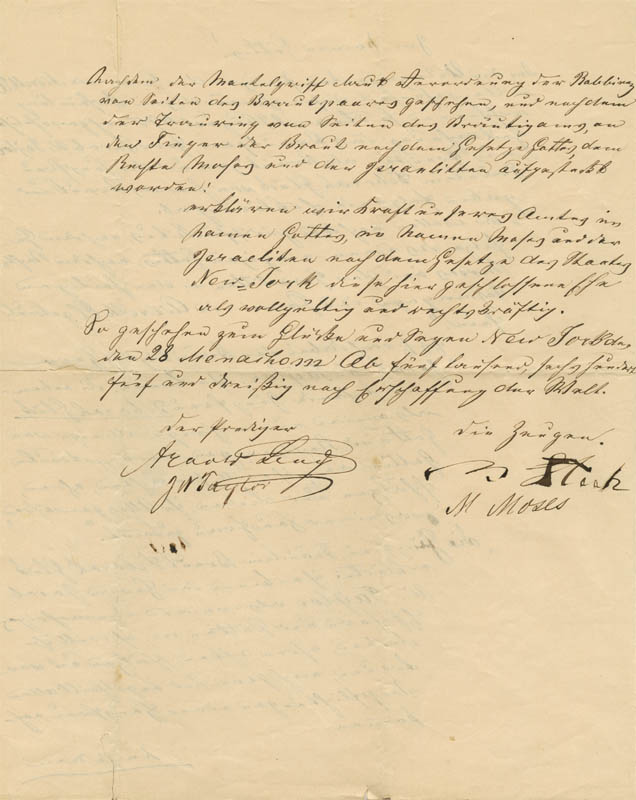 Nachdem der Mantelgriff laut Verordnung der Rabbinen
von Seiten des Brautpaares geschehen, und nachdem
der Trauring von Seiten des Bräutigams, an
den Finger der Braut nach dem Gesetze Gottes dem
Rechte Moses und der Israelitten aufgesteckt
worden!
erklären wir Kraft unseres Amtes im
Namen Gottes, im Namen Moses und der
Israeliten nach dem Gesetze des Staates
New-York diese hier geschlossene Ehe
als vollgültig und rechtskräftig.
So geschehen zum Glücke und Segen New York
den 28 Menachem Ab fünf tausend, sechs hundert
fünf und dreißig nach Erschaffung der Welt.
Der Prediger
Die Zeugen.
Arnold
J W Taylor
M Moses